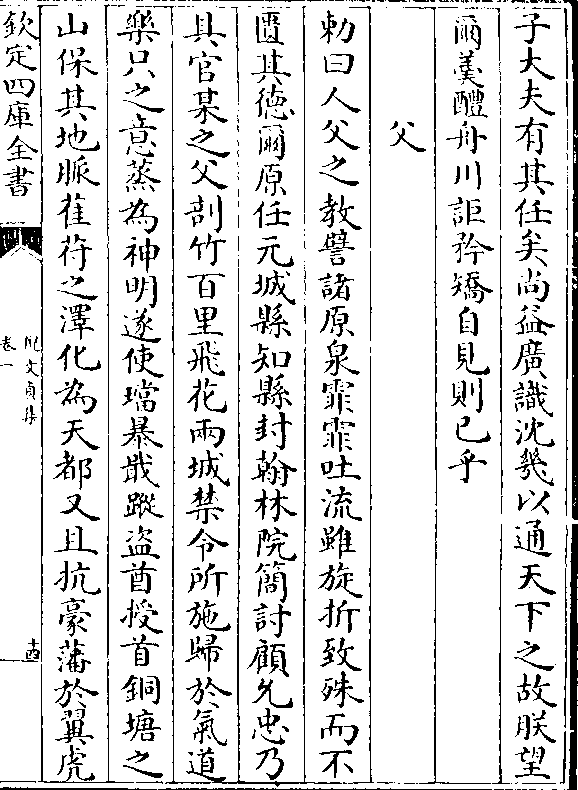 子大夫有其任矣尚益廣識沈幾以通天下之故朕望
爾羮醴舟川詎矜矯自見則已乎
父
勅曰人父之教譬諸原泉霏霏吐流雖旋折致殊而不
匱其徳爾原任元城縣知縣封翰林院簡討顧允忠乃
具官某之父剖竹百里飛花兩城禁令所施歸於氣道
樂只之意蒸為神明遂使璫暴戢蹤盗酋授首銅塘之
山保其地脈萑苻之澤化為天都又且抗豪藩於翼虎
欽定四庫全書
倪文貞集
卷一
十四